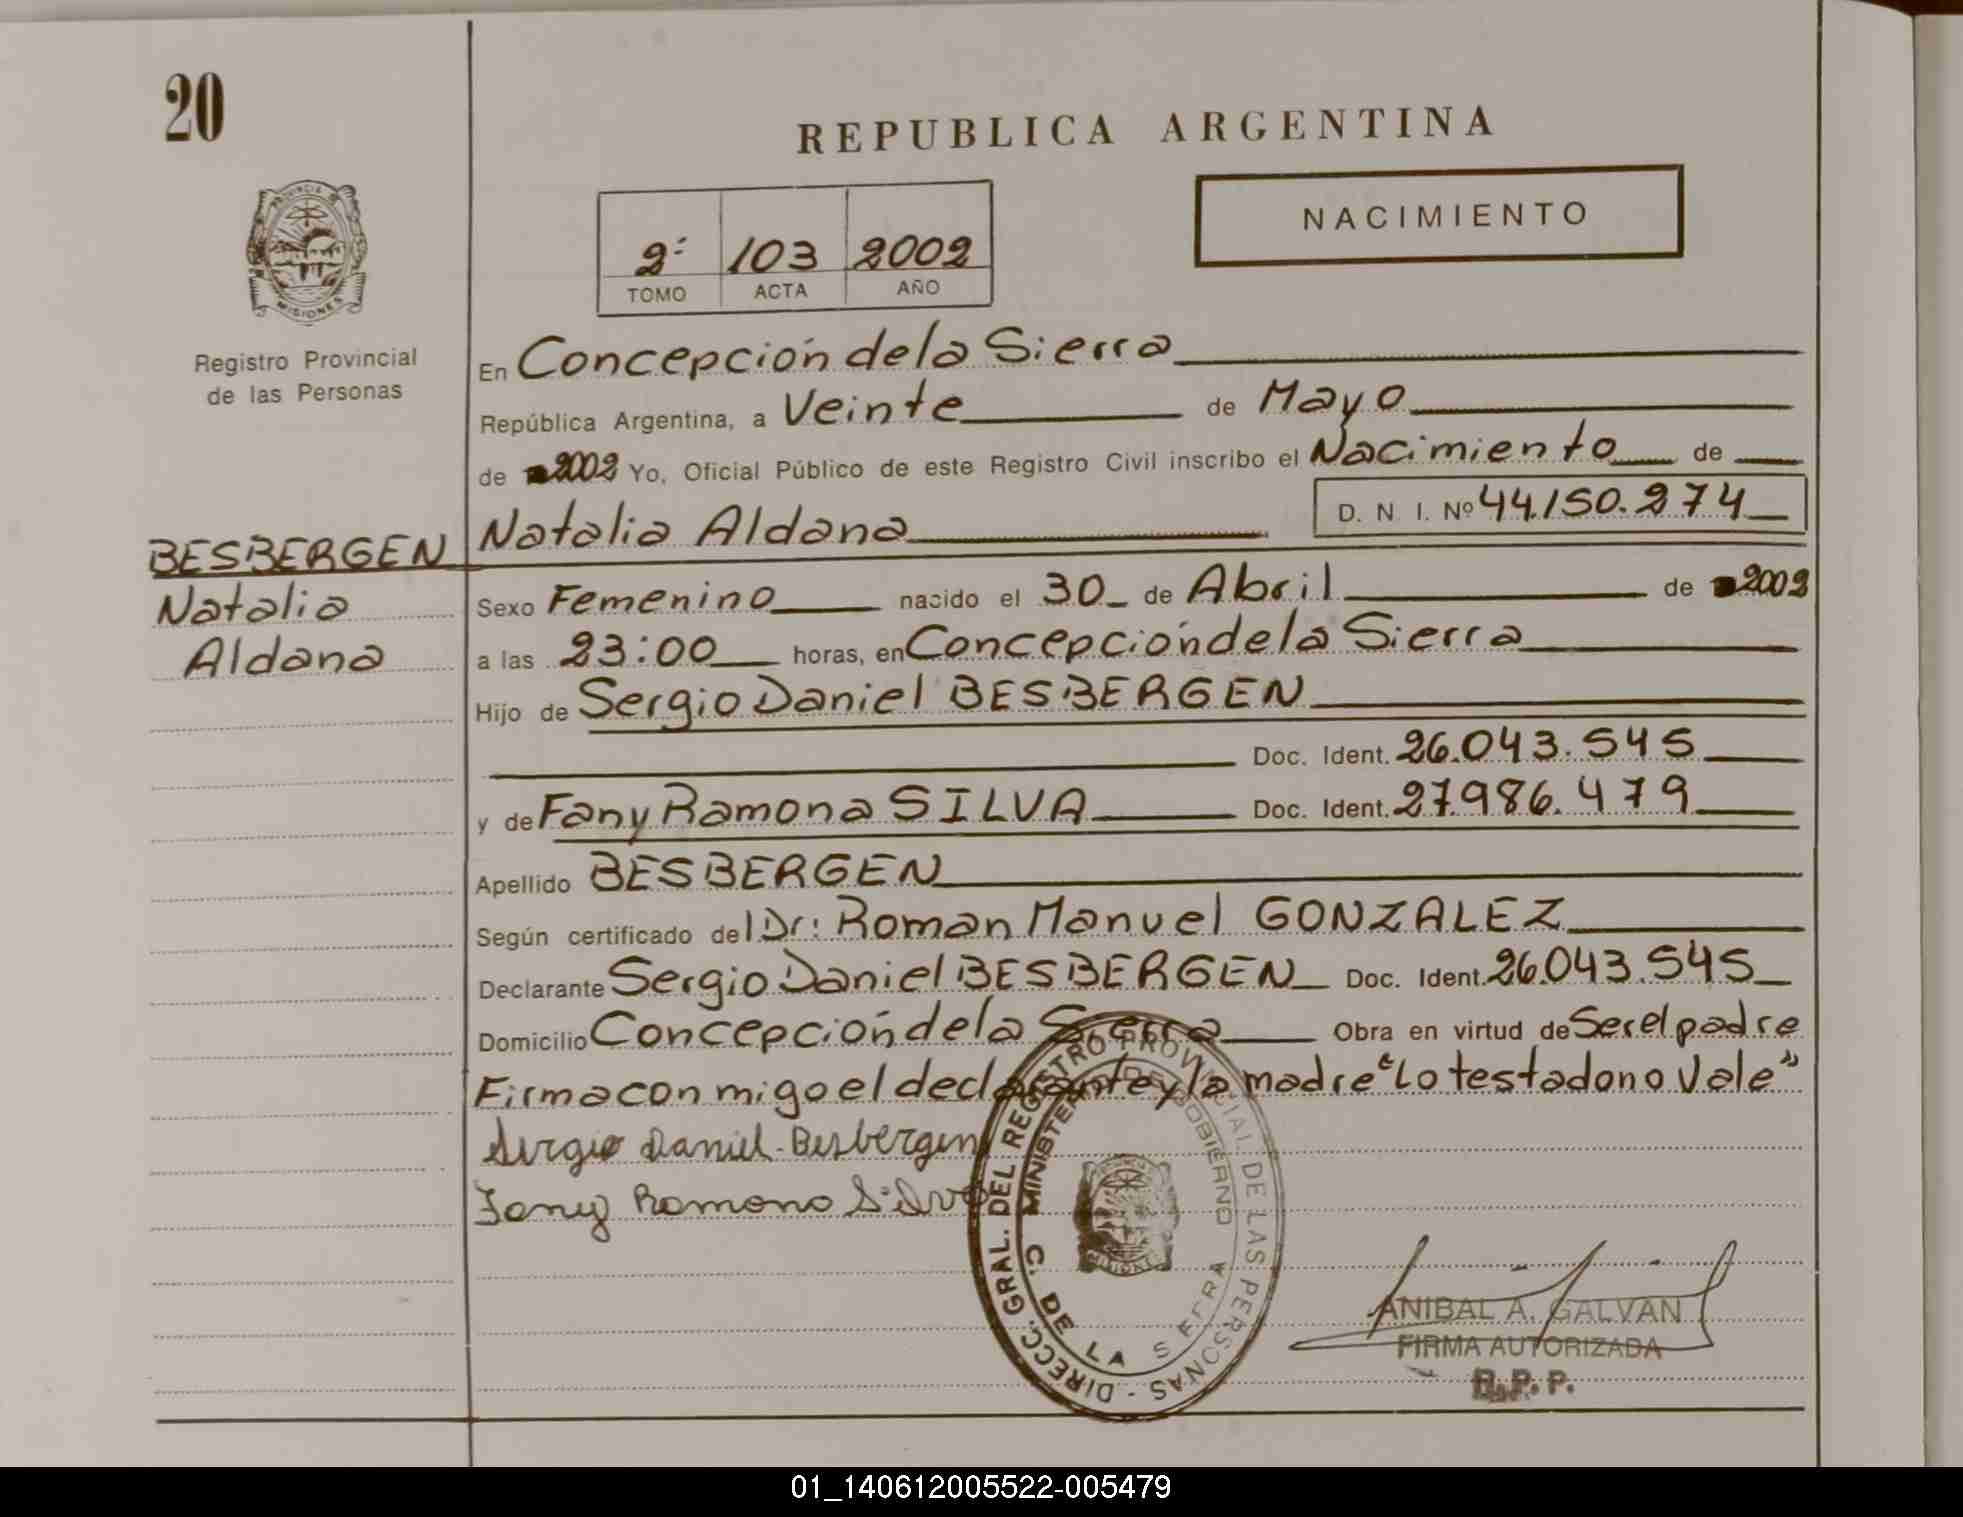 20
REPUBLICA ARGENTINA
NACIMIENTO
2º 103 2002
TOMO ACTA AÑO
PROVINCIA DE
MISIONES
Registro Provincial
de las Personas
En Concepción de la Sierra
República Argentina, a Veinte de Mayo
de 2002 Yo, Oficial Público de este Registro Civil inscribo el Nacimiento de
Natalia Aldana D. N. I. Nº 44.150.274
BESBERGEN
Natalia
Aldana
Sexo Femenino nacido el 30 de Abril de 2002
a las 23:00 horas, en Concepción de la Sierra
Hijo de Sergio Daniel BESBERGEN
Doc. Ident. 26.043.545
y de Fany Ramona SILVA Doc. Ident. 27.986.479
Apellido BESBERGEN
Según certificado del Dr: Roman Manuel GONZALEZ
Declarante Sergio Daniel BESBERGEN Doc. Ident. 26.043.545
Domicilio Concepción de la Sierra Obra en virtud de Ser el padre
Firma con migo el declarante y la madre "Lo testado no Vale"
Sergio Daniel Besbergen
Fany Ramona Silva
DIRECC. GRAL. DEL REGISTRO PROVINCIAL DE LAS PERSONAS -
MINISTERIO DE GOBIERNO
C. DE LA SIERRA
MISIONES
ANIBAL A. GALVAN
FIRMA AUTORIZADA
R.P.P.
01_140612005522-005479